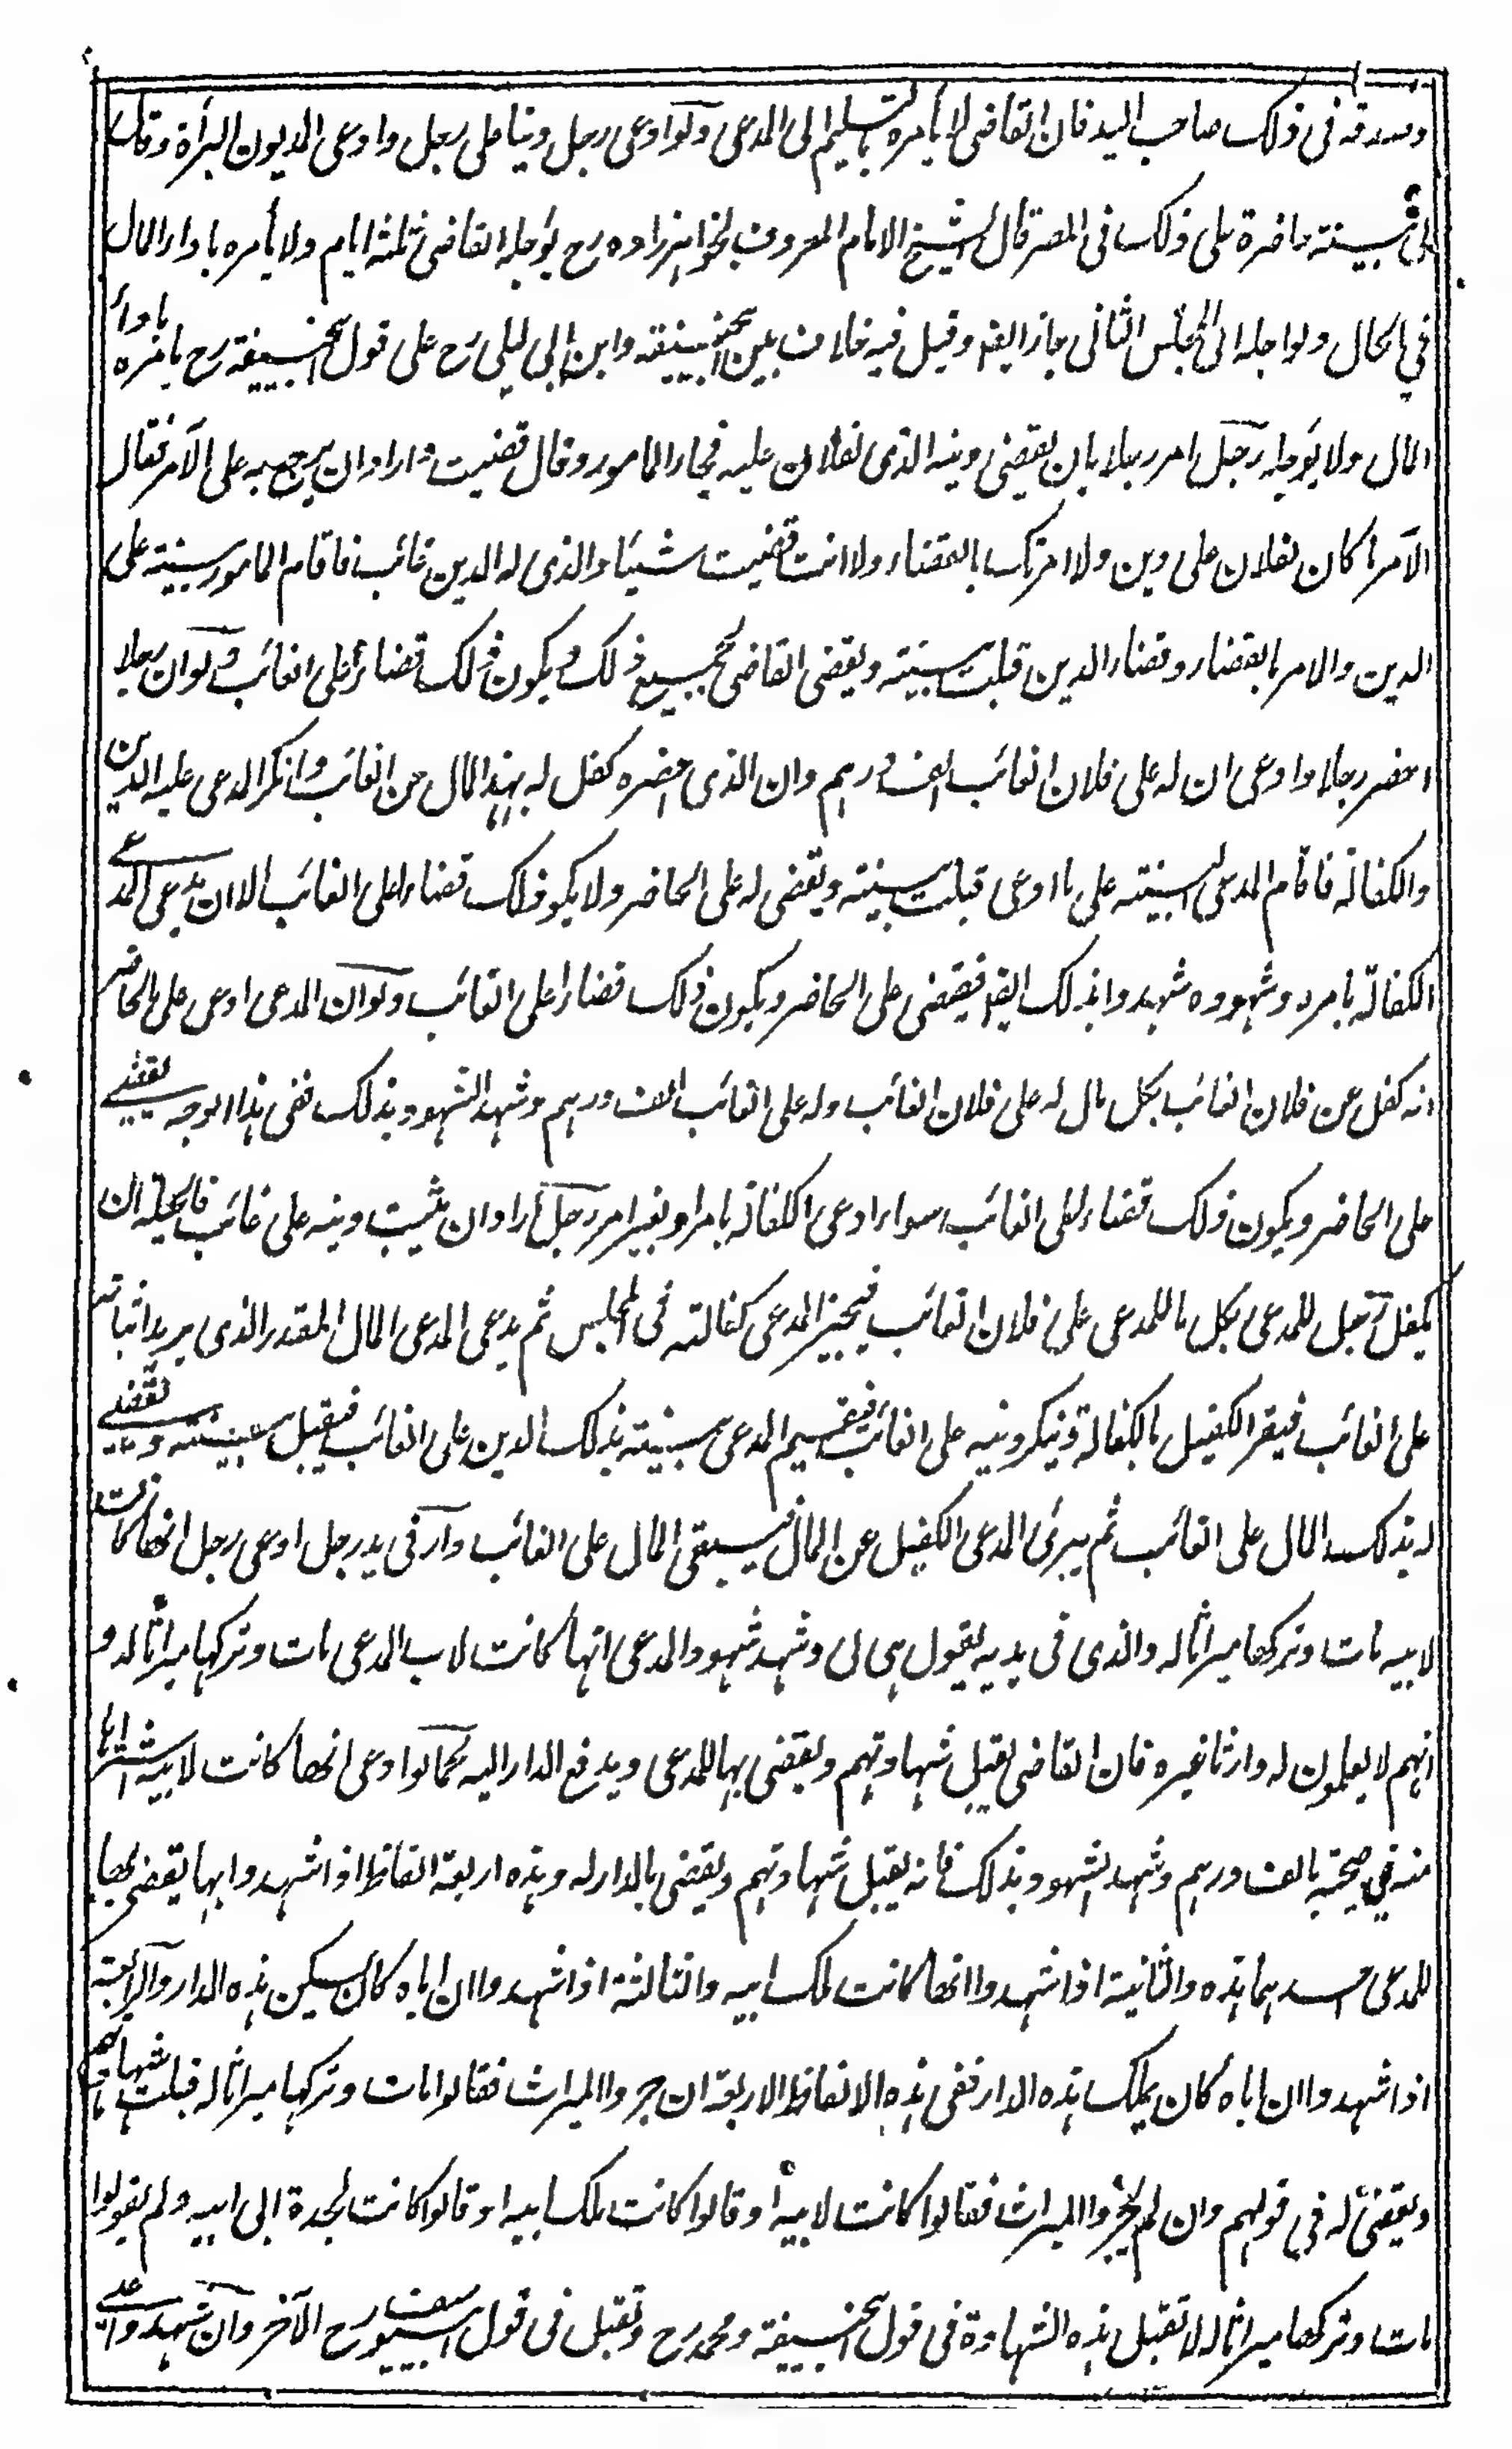 وصدقه فى ذلك صاحب اليد فان القاضى لا يأمره بالتسليم الى المدعى ولو ادعى رجل دينا على رجل وادعى المديون البرأة وقال
لى بينة حاضرة على ذلك فى المصر قال الشيخ الامام المعروف بخواهرزاده رح يؤجله القاضى ثلثة ايام ولا يأمره باداء المال
في الحال ولو اجله الى المجلس الثانى جاز ايضا وقيل فيه خلاف بين ابيحنيفة وابن ابى ليلى رح على قول ابيحنيفة رح يامره باداء
المال ولا يؤجله رجل امر رجلا بان يقضى دينه الذى لفلان عليه فجاء المامور وقال قضيت واراد ان يرجع به على الآمر فقال
الآمر ما كان لفلان على دين ولا امرتك بالقضاء ولا انت قضيت شيئا والذى له الدين غائب فاقام المامور بينة على
الدين والامر بالقضاء وقضاء الدين قبلت بينته ويقضى القاضى بجميع ذلك ويكون ذلك قضاء على الغائب ولو ان رجلا
احضر رجلا وادعى ان له على فلان الغائب الف درهم وان الذى احضره كفل له بهذا المال عن الغائب وانكر المدعى عليه الدين
والكفالة فاقام المدعى البينة على ما ادعى قبلت بينته ويقضى له على الحاضر ولا يكون ذلك قضاء على الغائب الا ان يدعى المدعى
الكفالة بامره وشهوده شهدوا بذلك ايضا فيقضى على الحاضر ويكون ذلك قضاء على الغائب ولو ان المدعى ادعى على الحاضر
انه كفل عن فلان الغائب بكل مال له على فلان الغائب وله على الغائب الف درهم وشهد الشهود بذلك ففى هذا الوجه يقضى
على الحاضر ويكون ذلك قضاء على الغائب سواء ادعى الكفالة بامر او بغير امر رجل اراد ان يثبت دينه على غائب فالحيلة ان
يكفل رجل للمدعى بكل ما للمدعى على فلان الغائب فيجيز المدعى كفالته فى المجلس ثم يدعى المدعى المال المقدر الذى يريد اثباته
على الغائب فيقر الكفيل بالكفالة وينكر دينه على الغائب فيقيم المدعى بينته بذلك الدين على الغائب فيقبل بينته ويقضى
له بذلك المال على الغائب ثم يبرئ المدعى الكفيل عن المال فيبقى المال على الغائب دار فى يد رجل ادعى رجل انها كانت
لابيه مات وتركها ميراثا له والذى فى يديه يقول هى لى وشهد شهود المدعى انها كانت لاب المدعى مات وتركها ميراثا له و
انهم لا يعلمون له وارثا غيره فان القاضى يقبل شهادتهم ويقضى بها للمدعى ويدفع الدار اليه كما لو ادعى انها كانت لابيه اشتراها
منه في صحته بالف درهم وشهد الشهود بذلك فانه يقبل شهادتهم ويقضى بالدار له وهذه اربعة الفاظ اذا شهدوا بها يقضى بها
للمدعى احدها هذه والثانية اذا شهدوا انها كانت ملك ابيه والثالثة اذا شهدوا ان اباه كان يسكن هذه الدار والرابعة
اذا شهدوا ان اباه كان يملك هذه الدار ففى هذه الالفاظ الاربعة ان جروا الميراث فقالوا مات وتركها ميراثا له قبلت شهادتهم
ويقضى له في قولهم وان لم يجروا الميراث فقالوا كانت لابيه او قالوا كانت ملك ابيه او قالوا كانت لجده ابى ابيه ولم يقولوا
مات وتركها ميراثا له لا تقبل هذه الشهادة فى قول ابيحنيفة ومحمد رح وتقبل فى قول ابييوسف رح الآخر وان شهدوا على